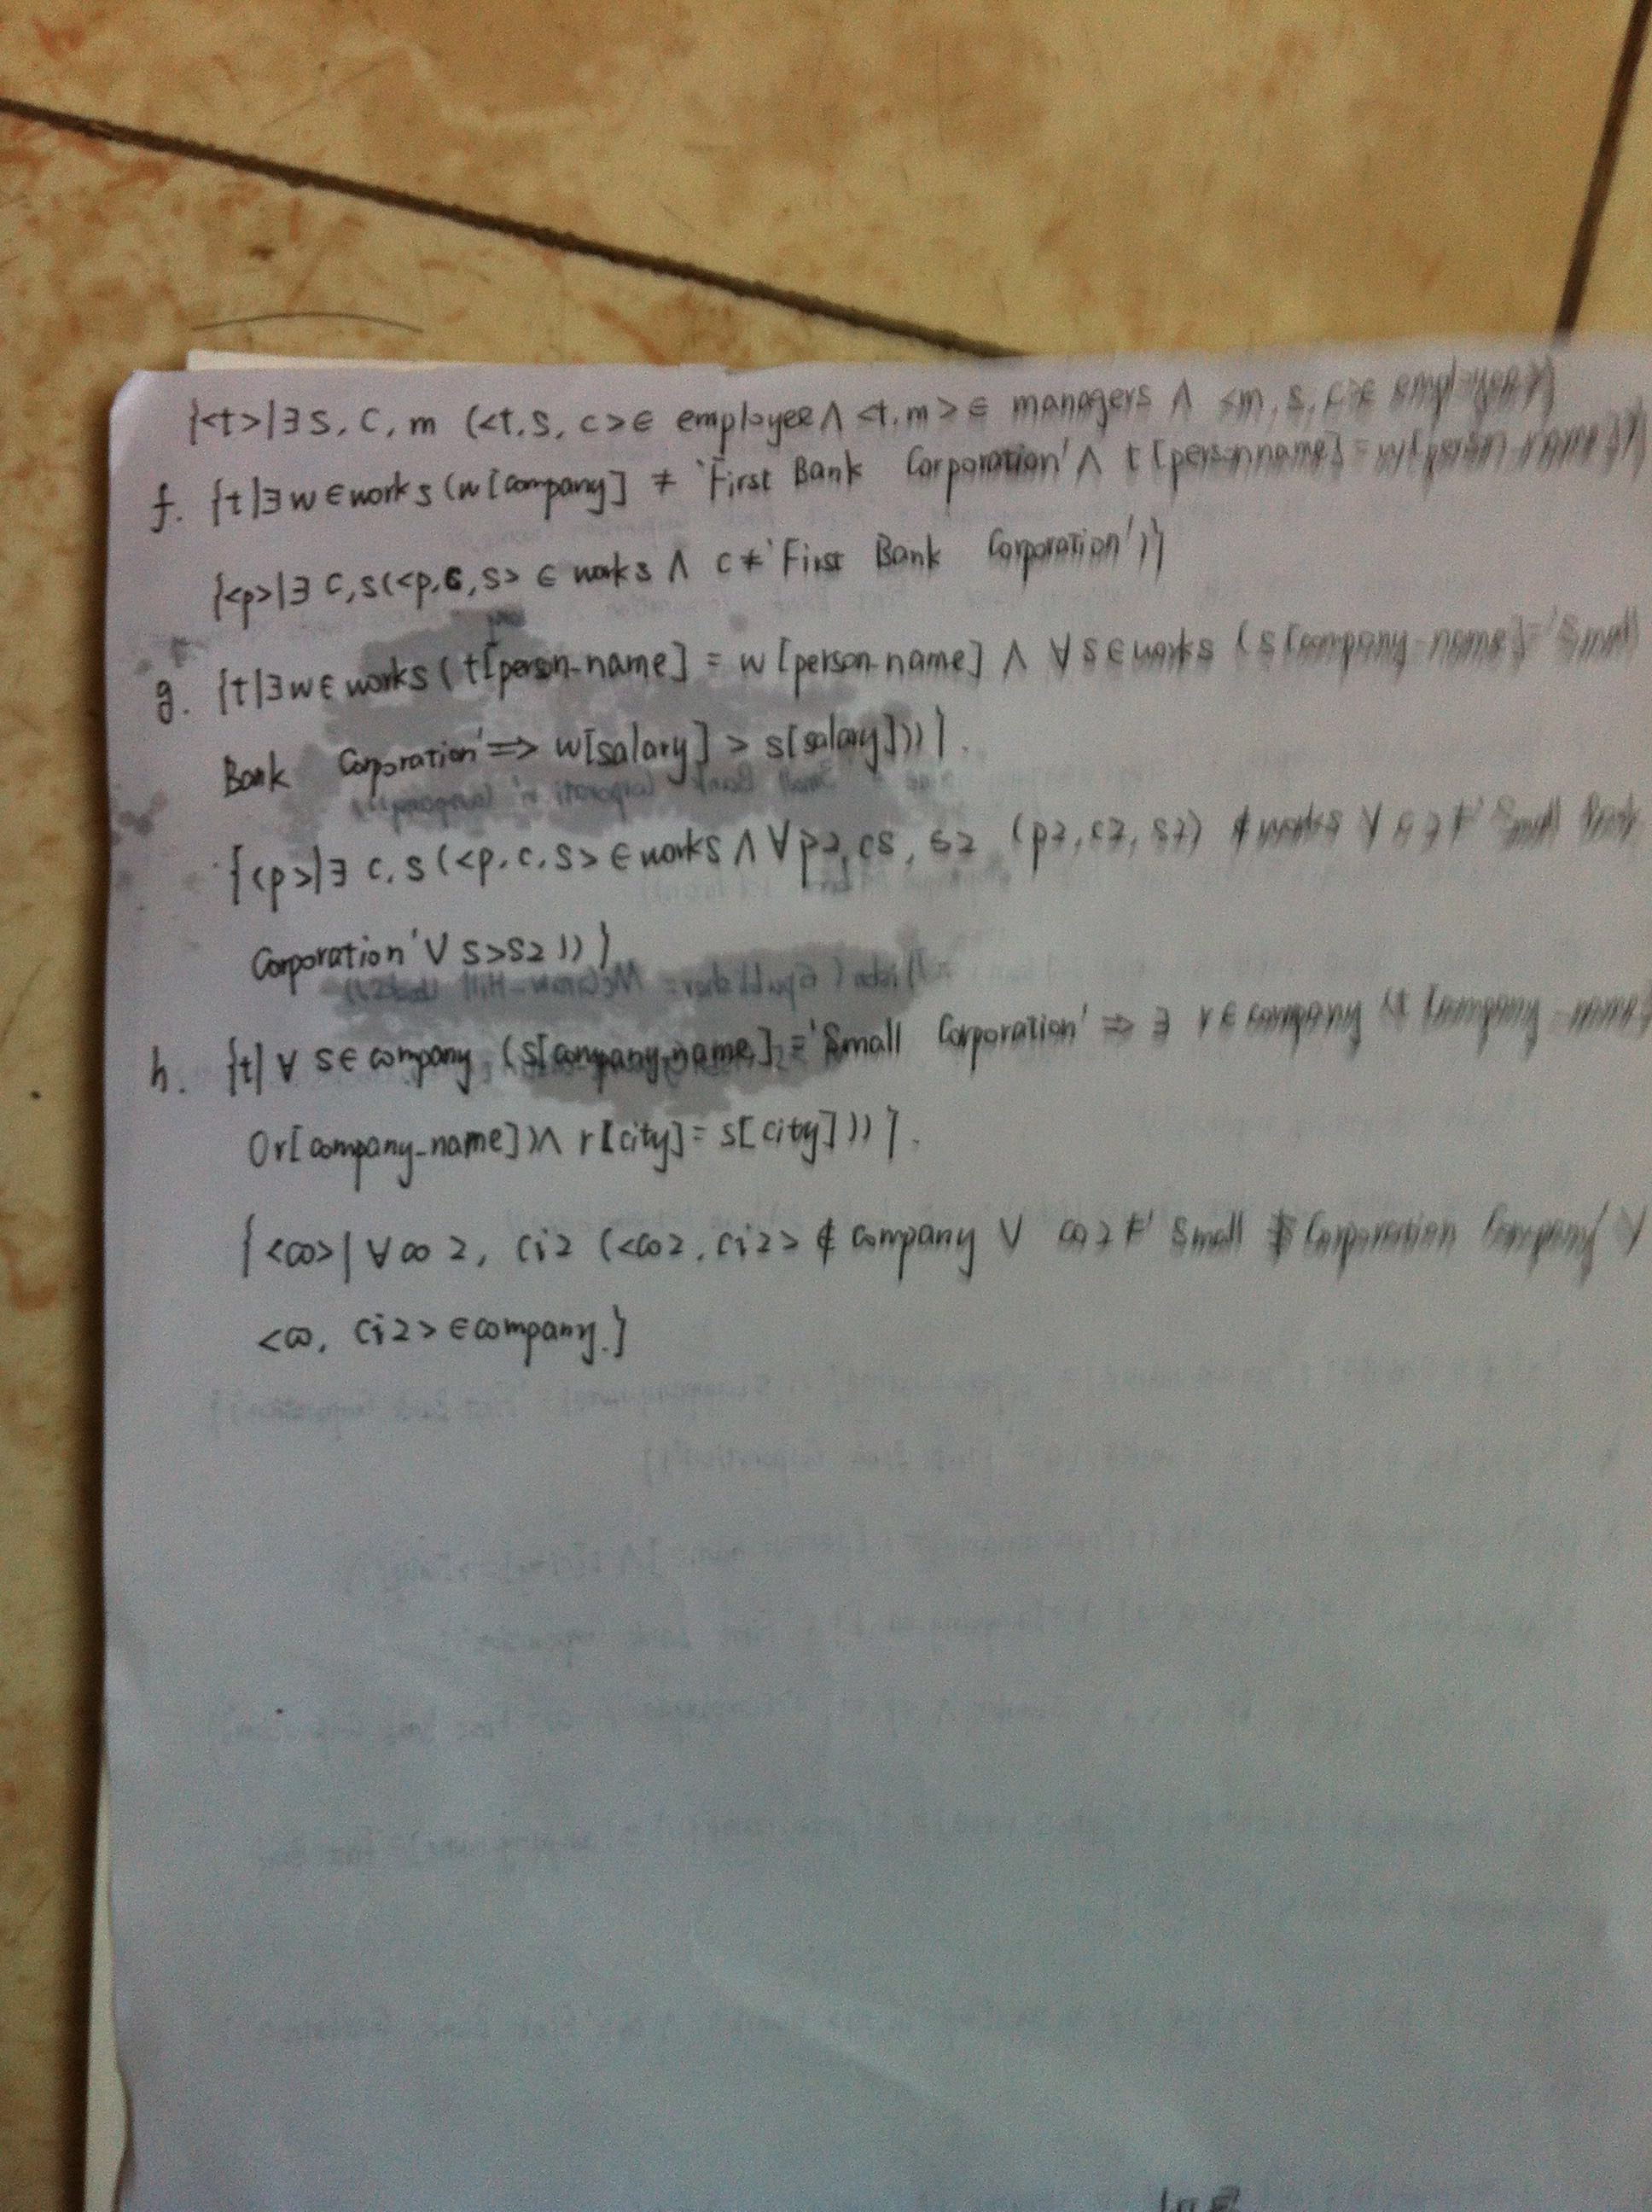 {<t>|∃ s, c, m (<t, s, c> ∈ employee ∧ <t, m> ∈ managers ∧ <m, s, c> ∈ employee)}
f. {t|∃w ∈ works (w[company] ≠ 'First Bank Corporation' ∧ t[personname] = w[person name])}
{<p>|∃ c, s(<p, c, s> ∈ works ∧ c ≠ 'First Bank Corporation')}
g. {t|∃w ∈ works (t[person-name] = w [person-name] ∧ ∀ s ∈ works (s[company-name] = 'Small
Bank Corporation' => w[salary] > s[salary]))}.
{<p>|∃ c, s (<p, c, s> ∈ works ∧ ∀ p2, cs, s2 (p2, c2, s2) ∉ works ∨ c2 ≠ 'Small Bank
Corporation' ∨ s>s2 ))}
h. {t| ∀ s ∈ company (s[company-name] = 'Small Corporation' => ∃ r ∈ company (t [company name]
Or[company_name]) ∧ r[city] = s[city]))}.
{<co>| ∀ co 2, ci2 (<co2, ci2> ∉ company ∨ co2 ≠ ' Small Corporation
<co, ci2> ∈ company.}